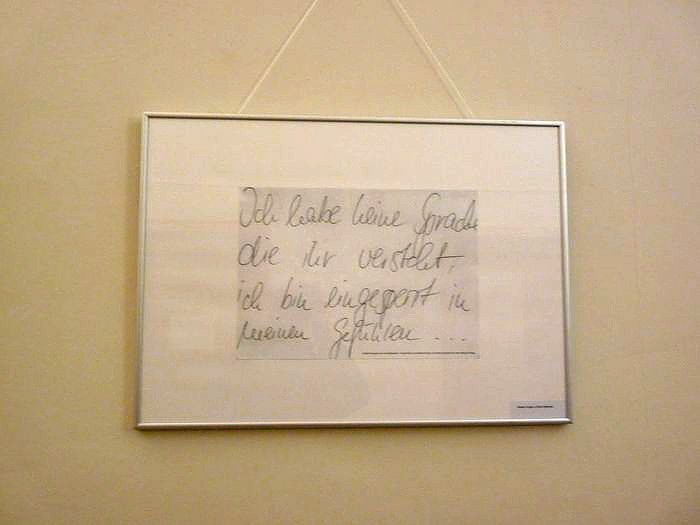 Ich habe keine Sprache
die ihr versteht,
ich bin eingesperrt in
meinen Gefühlen ...